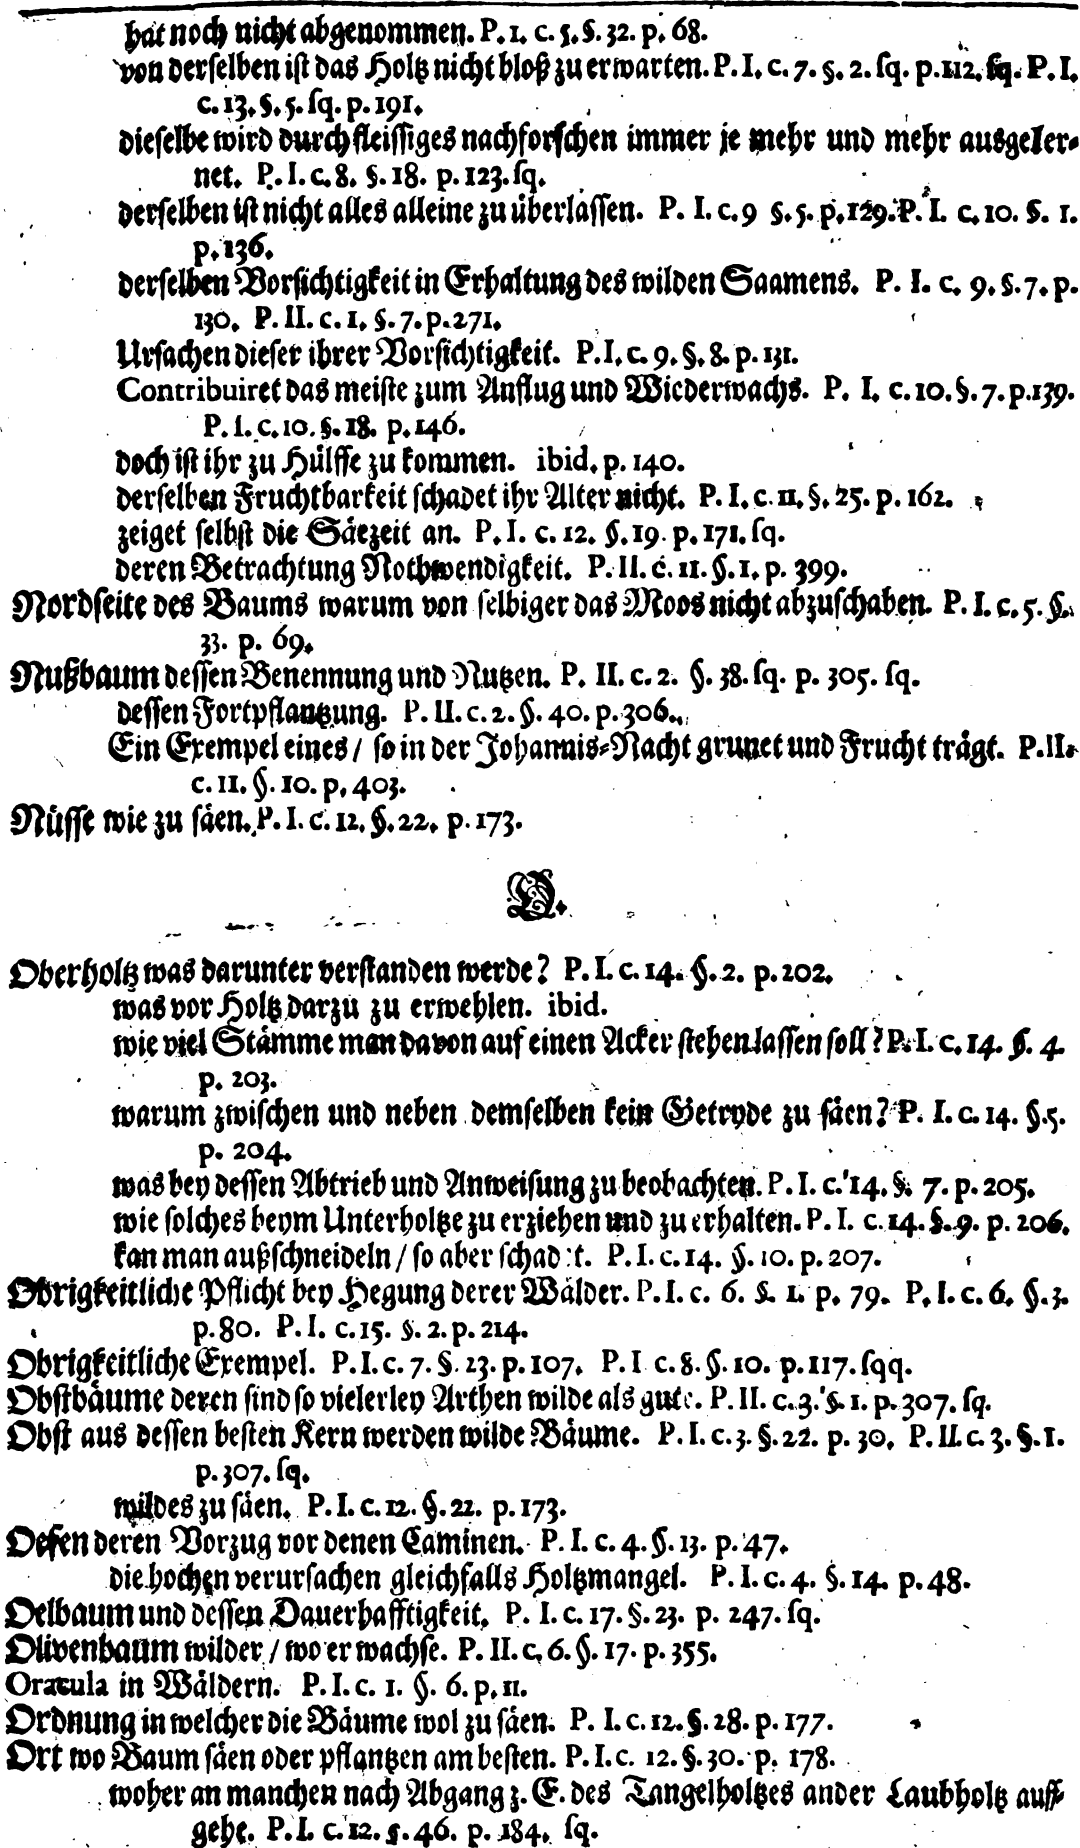 hat noch nicht abgenommen. P. 1. c. 5. §. 32. p. 68.
von derselben ist das Holtz nicht bloß zu erwarten. P. I. c. 7. §. 2. sq. p. 112. sq. P. I.
c. 13. §. 5. sq. p. 191.
dieselbe wird durch fleissiges nachforschen immer je mehr und mehr ausgeler-
net. P. I. c. 8. §. 18. p. 123. sq.
derselben ist nicht alles alleine zu überlassen. P. I. c. 9 §. 5. p. 129. P. I. c. 10. §. 1.
p. 136.
derselben Vorsichtigkeit in Erhaltung des wilden Saamens. P. I. c. 9. §. 7. p.
130. P. II. c. 1. §. 7. p. 271.
Ursachen dieser ihrer Vorsichtigkeit. P. I. c. 9. §. 8. p. 131.
Contribuiret das meiste zum Anflug und Wiederwachs. P. I. c. 10. §. 7. p. 139.
P. I. c. 10. §. 18. p. 146.
doch ist ihr zu Hülffe zu kommen. ibid. p. 140.
derselben Fruchtbarkeit schadet ihr Alter nicht. P. I. c. 11. §. 25. p. 162.
zeiget selbst die Säezeit an. P. I. c. 12. §. 19. p. 171. sq.
deren Betrachtung Nothwendigkeit. P. II. c. 11. §. 1. p. 399.
Nordseite des Baums warum von selbiger das Moos nicht abzuschaben. P. I. c. 5. §.
33. p. 69.
Nußbaum dessen Benennung und Nutzen. P. II. c. 2. §. 38. sq. p. 305. sq.
dessen Fortpflantzung. P. II. c. 2. §. 40. p. 306.
Ein Exempel eines / so in der Johannis-Nacht grunet und Frucht trägt. P. II.
c. 11. §. 10. p. 403.
Nüsse wie zu säen. P. I. c. 12. §. 22. p. 173.
O.
Oberholtz was darunter verstanden werde? P. I. c. 14. §. 2. p. 202.
was vor Holtz darzu zu erwehlen. ibid.
wie viel Stämme man davon auf einen Acker stehen lassen soll? P. I. c. 14. §. 4.
p. 203.
warum zwischen und neben demselben kein Getryde zu säen? P. I. c. 14. §. 5.
p. 204.
was bey dessen Abtrieb und Anweisung zu beobachten. P. I. c. 14. §. 7. p. 205.
wie solches beym Unterholtze zu erziehen und zu erhalten. P. I. c. 14. §. 9. p. 206.
kan man außschneideln / so aber schadet. P. I. c. 14. §. 10. p. 207.
Obrigkeitliche Pflicht bey Hegung derer Wälder. P. I. c. 6. §. 1. p. 79. P. I. c. 6. §. 3.
p. 80. P. I. c. 15. §. 2. p. 214.
Obrigkeitliche Exempel. P. I. c. 7. §. 23. p. 107. P. I c. 8. §. 10. p. 117. sqq.
Obstbäume deren sind so vielerley Arthen wilde als gute. P. II. c. 3. §. 1. p. 307. sq.
Obst aus dessen besten Kern werden wilde Bäume. P. I. c. 3. §. 22. p. 30. P. II. c. 3. §. 1.
p. 307. sq.
wildes zu säen. P. I. c. 12. §. 22. p. 173.
Oefen deren Vorzug vor denen Caminen. P. I. c. 4. §. 13. p. 47.
die hochen verursachen gleichfalls Holtzmangel. P. I. c. 4. §. 14. p. 48.
Oelbaum und dessen Dauerhafftigkeit. P. I. c. 17. §. 23. p. 247. sq.
Olivenbaum wilder / wo er wachse. P. II. c. 6. §. 17. p. 355.
Oracula in Wäldern. P. I. c. 1. §. 6. p. 11.
Ordnung in welcher die Bäume wol zu säen. P. I. c. 12. §. 28. p. 177.
Ort wo Baum säen oder pflantzen am besten. P. I. c. 12. §. 30. p. 178.
woher an manchen nach Abgang z. E. des Tangelholtzes ander Laubholtz auff-
gehe. P. I. c. 12. §. 46. p. 184. sq.